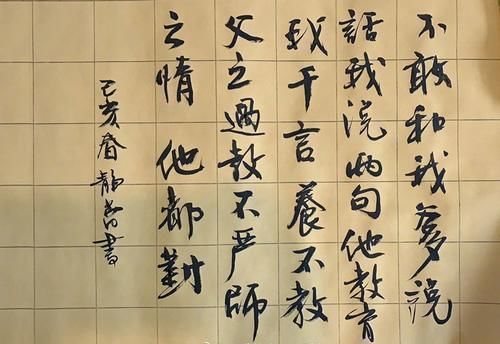 不敢和我爹説
話我説两句他教育
我千言養不教
父之過教不严師
之惰他都對
己亥春静書